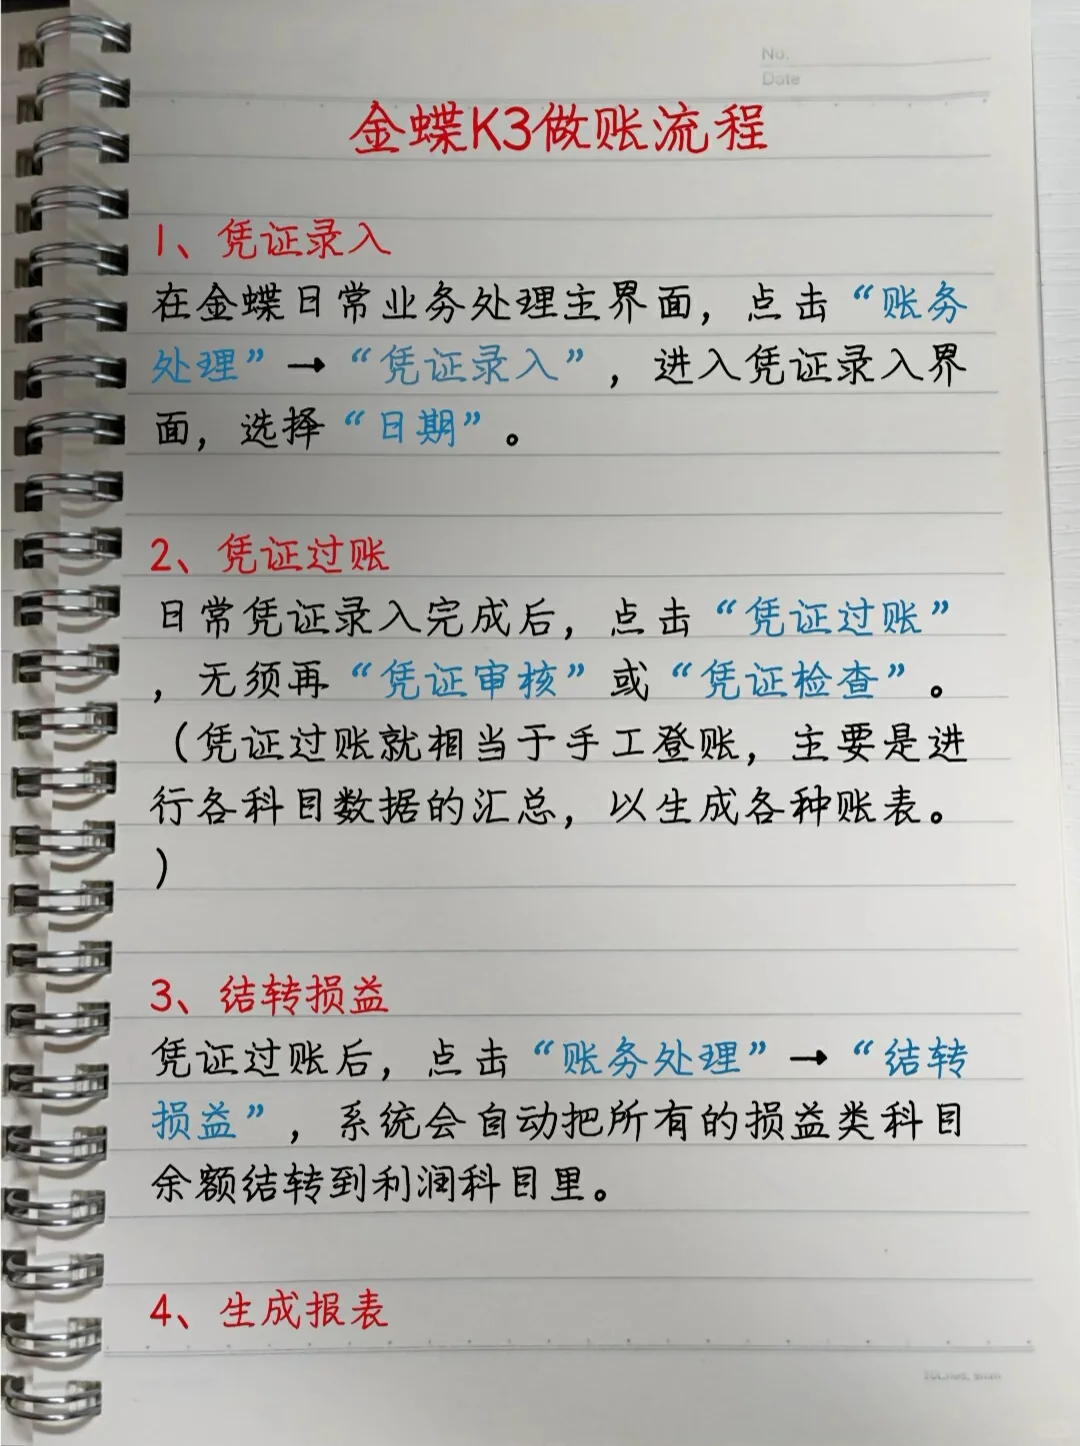 No.
Date
金蝶K3做账流程
1、凭证录入
在金蝶日常业务处理主界面，点击“账务
处理”→“凭证录入”，进入凭证录入界
面，选择“日期”。
2、凭证过账
日常凭证录入完成后，点击“凭证过账”
，无须再“凭证审核”或“凭证检查”。
（凭证过账就相当于手工登账，主要是进
行各科目数据的汇总，以生成各种账表。
）
3、结转损益
凭证过账后，点击“账务处理”→“结转
损益”，系统会自动把所有的损益类科目
余额结转到利润科目里。
4、生成报表